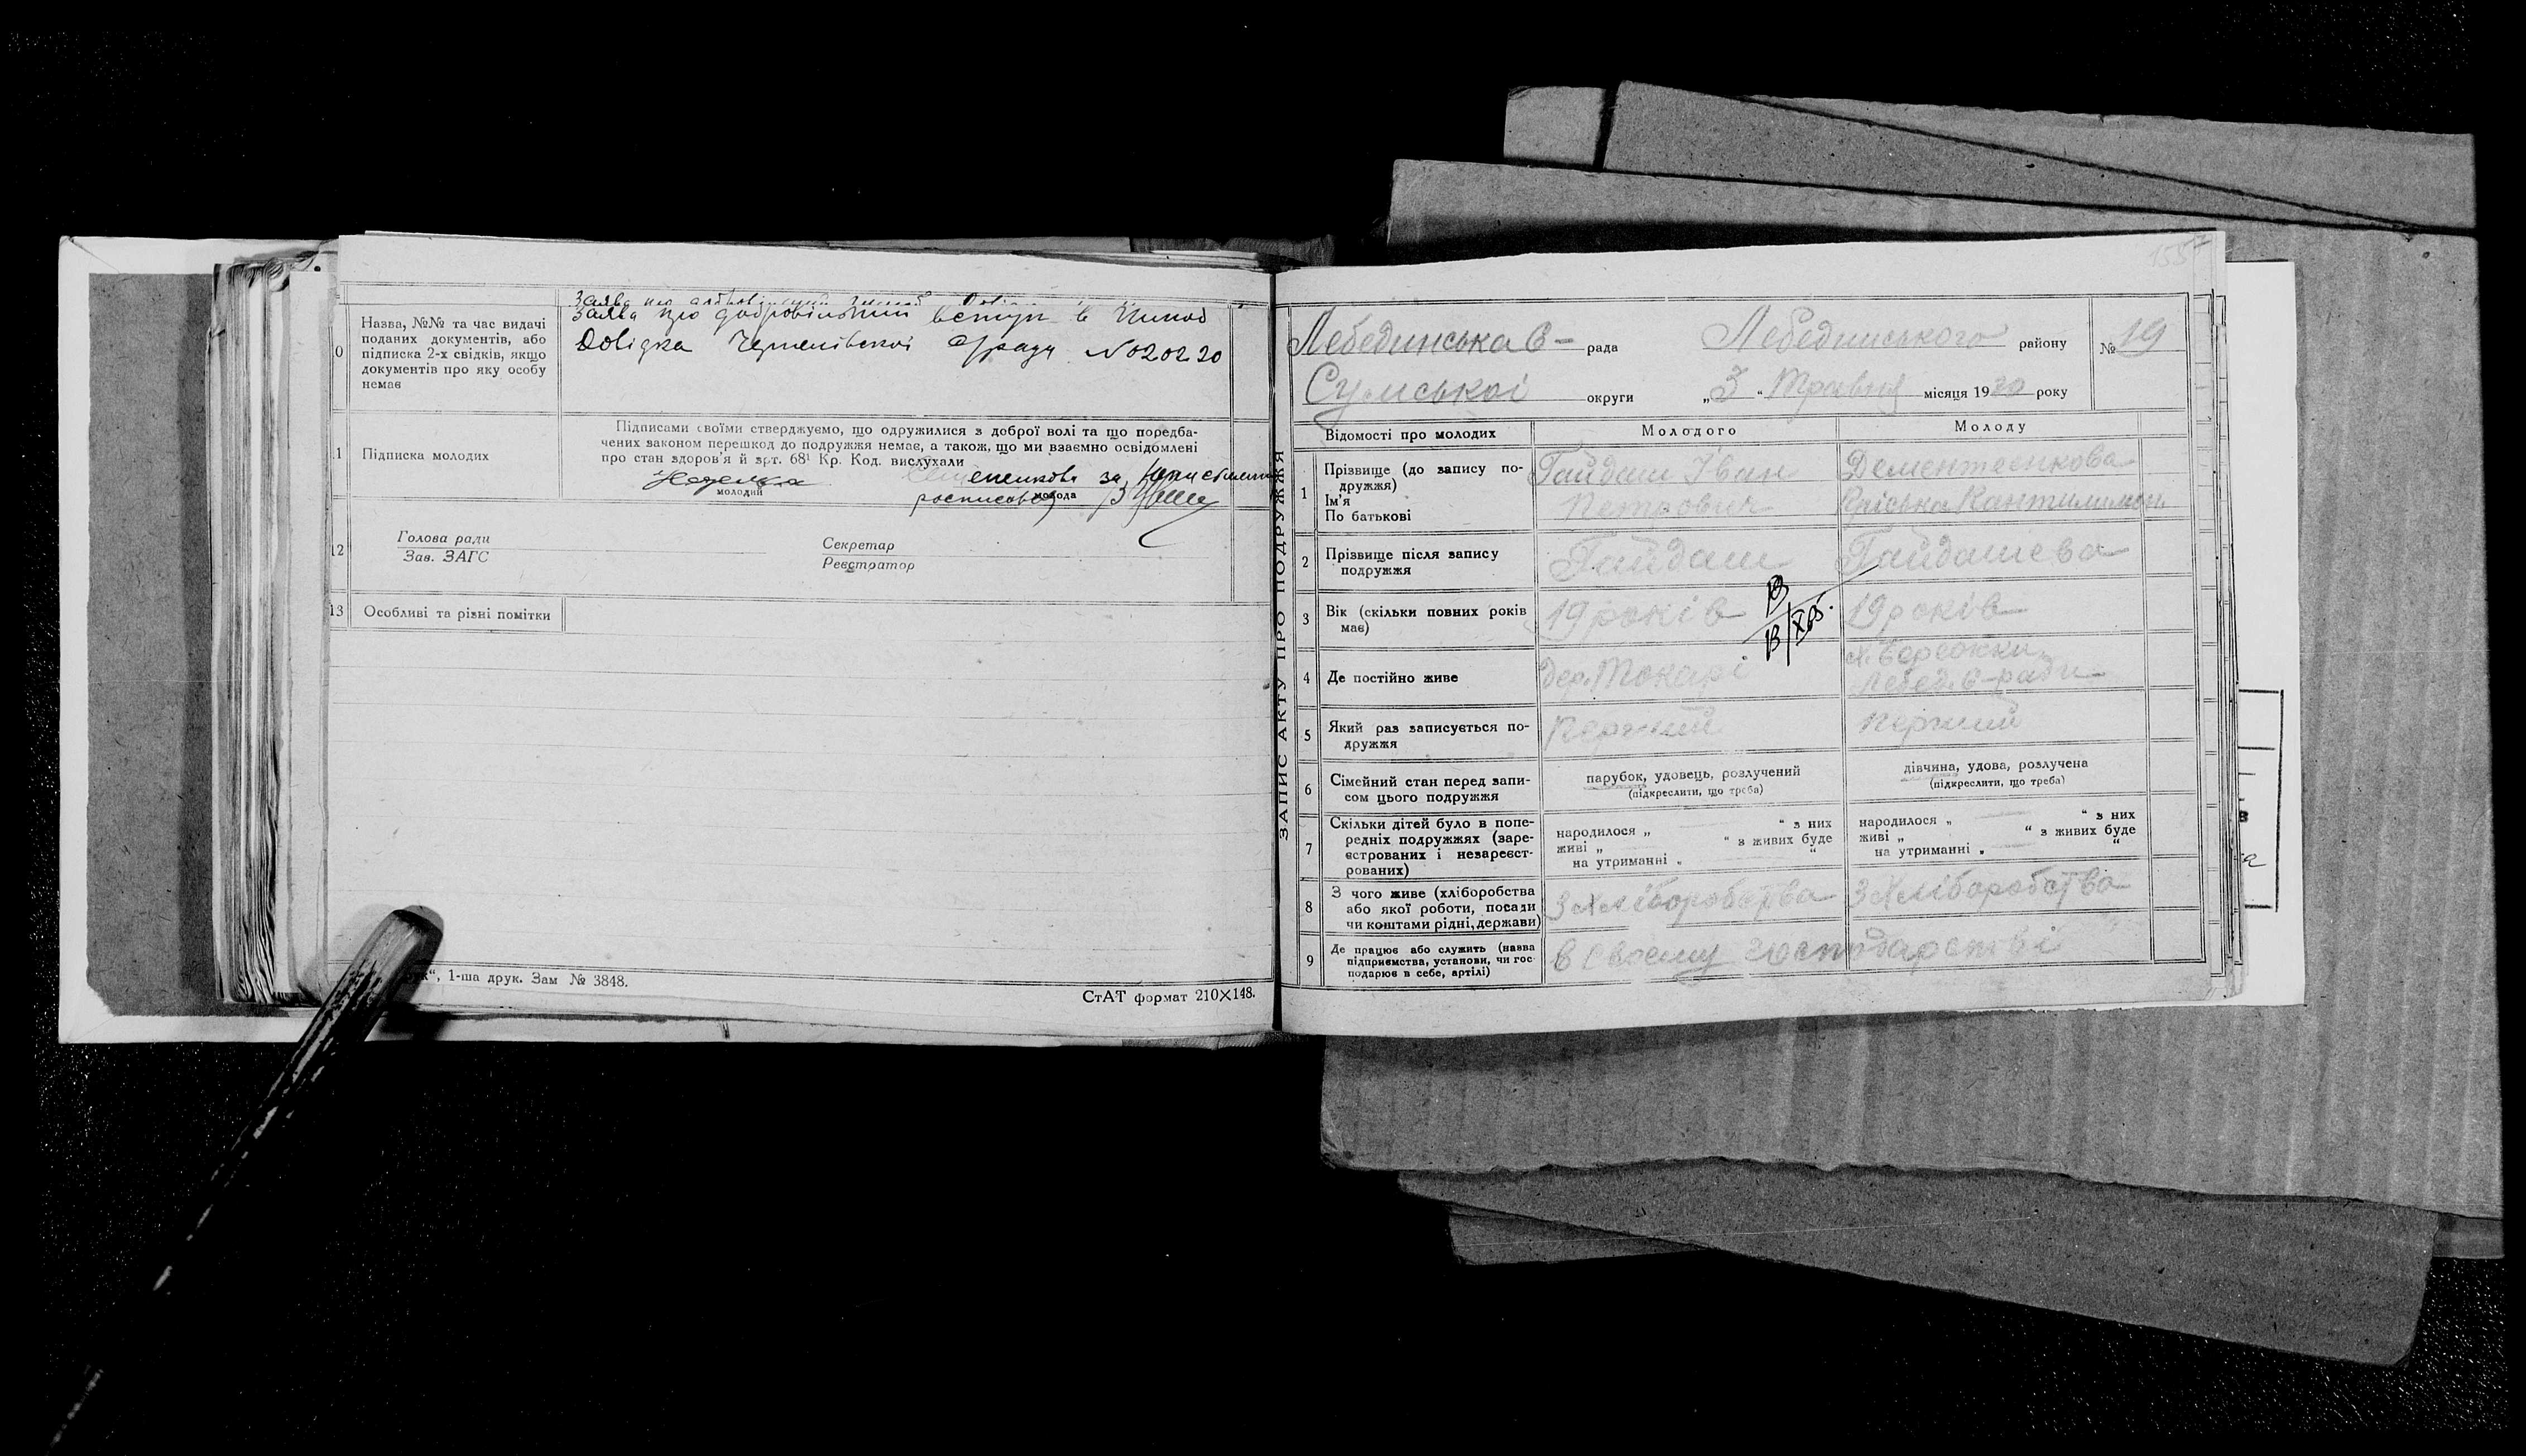 Назва, №№ та час видачі
поданих документів, або
підписка 2-х свідків, якщо
документів про яку особу
немає
0
Заява про добровільний вступ в
Довідка ради №
11
Підписка молодих
Підписами своїми стверджуємо, що одружилися з доброї волі та що поредба-
чених законом перешкод до подружжя немає, а також, що ми взаємно освідомлені
про стан здоров'я й арт. 68¹ Кр. Код. вислухали
за
молодий
молода
12
Голова ради
Зав. ЗАГС
Секретар
Реєстратор
13 Особливі та різні помітки
1-ша друк. Зам № 3848.
СтАТ формат 210×148.
ЗАПИС АКТУ ПРО ПОДРУЖЖЯ
155
Лебединська с- рада Лебединського району № 19
Сумської округи „3“ Травня місяця 1930 року
Відомості про молодих Молодого Молоду
1 Прізвище (до запису по-
дружжя)
Ім'я
По батькові
Гайдаш Іван
Петрович
Дементеенкова
2 Прізвище після запису
подружжя
Гайдаш Гайдашева
3 Вік (скільки повних років
має)
19 років 19 років
4 Де постійно живе
дер. Токарі
х. Бережки
Лебед. с-ради
5 Який раз записується по-
дружжя
перший перший
6 Сімейний стан перед запи-
сом цього подружжя
парубок, удовець, розлучений
(підкреслити, що треба)
дівчина, удова, розлучена
(підкреслити, що треба)
7 Скільки дітей було в попе-
редніх подружжях (заре-
єстрованих і незареєст-
рованих)
народилося „ “ з них
живі „ “ з живих буде
на утриманні „ “
народилося „ “ з них
живі „ “ з живих буде
на утриманні „ “
8 З чого живе (хліборобства
або якої роботи, посади
чи коштами рідні, держави)
З хліборобства З хліборобства
9 Де працює або служить (назва
підприємства, установи, чи гос-
подарює в себе, артілі)
в своєму господарстві